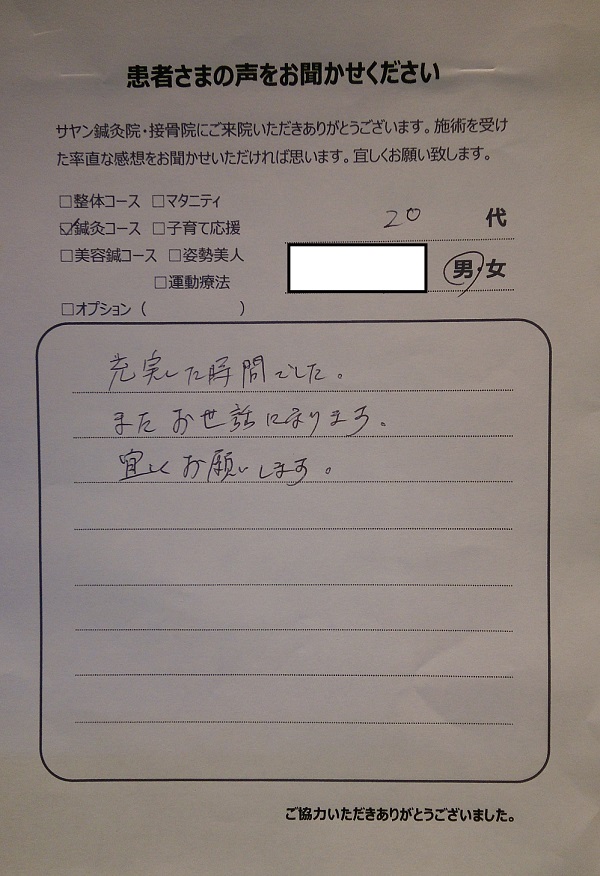 患者さまの声をお聞かせください
サヤン鍼灸院・接骨院にご来院いただきありがとうございます。施術を受け
た率直な感想をお聞かせいただければ思います。宜しくお願い致します。
□整体コース □マタニティ
☑鍼灸コース □子育て応援
20 代
□美容鍼コース □姿勢美人
男・女
□運動療法
□オプション（ ）
充実した時間でした。
またお世話になります。
宜しくお願いします。
ご協力いただきありがとうございました。